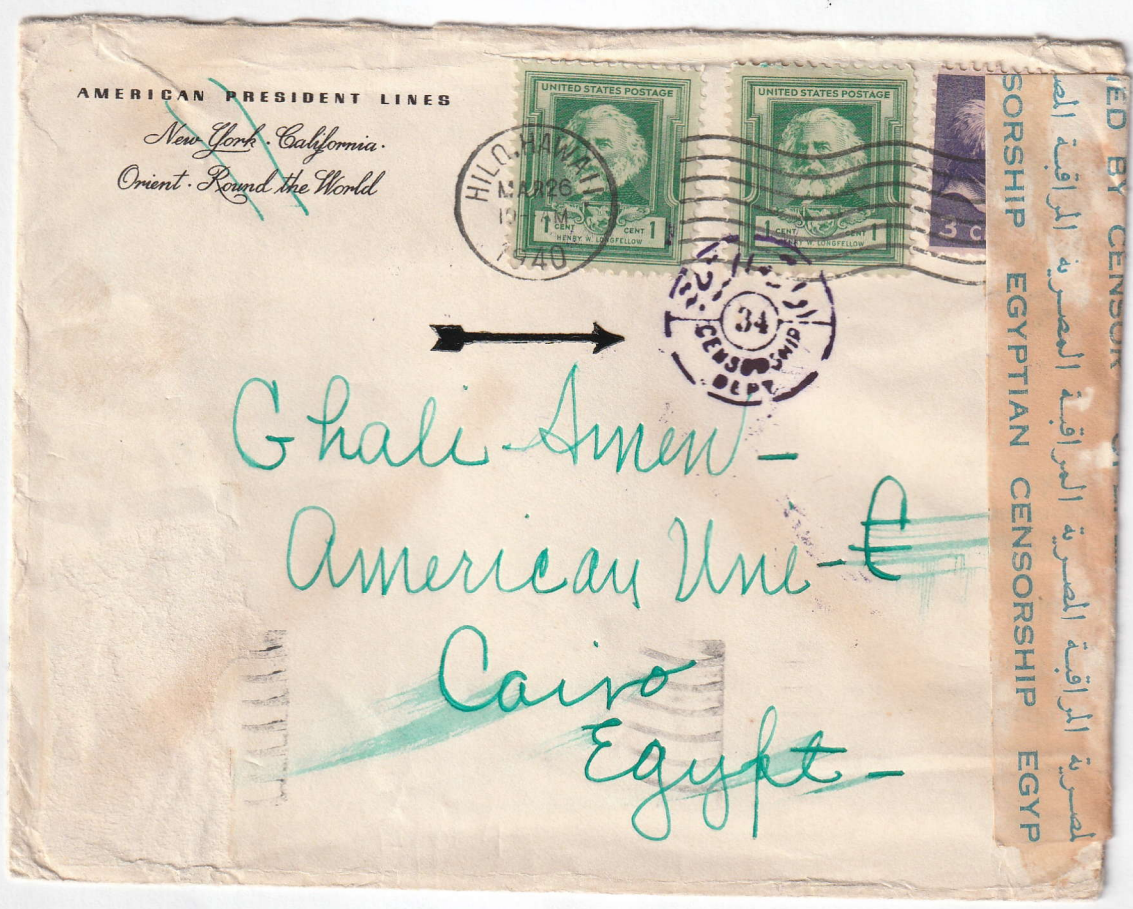 AMERICAN PRESIDENT LINES
New York · California ·
Orient · Round the World
UNITED STATES POSTAGE
1 CENT CENT 1
HENRY W. LONGFELLOW
UNITED STATES POSTAGE
1 CENT CENT 1
HENRY W. LONGFELLOW
3 C
HILO, HAWAII
MAR 26
1940
34
CENSORSHIP
DEPT.
Ghali Amen -
American Uni -
Cairo
Egypt -
SORSHIP EGYPTIAN CENSORSHIP EGYP
المراقبة المصرية المراقبة المصرية المراقبة المصرية
IED BY CENSOR